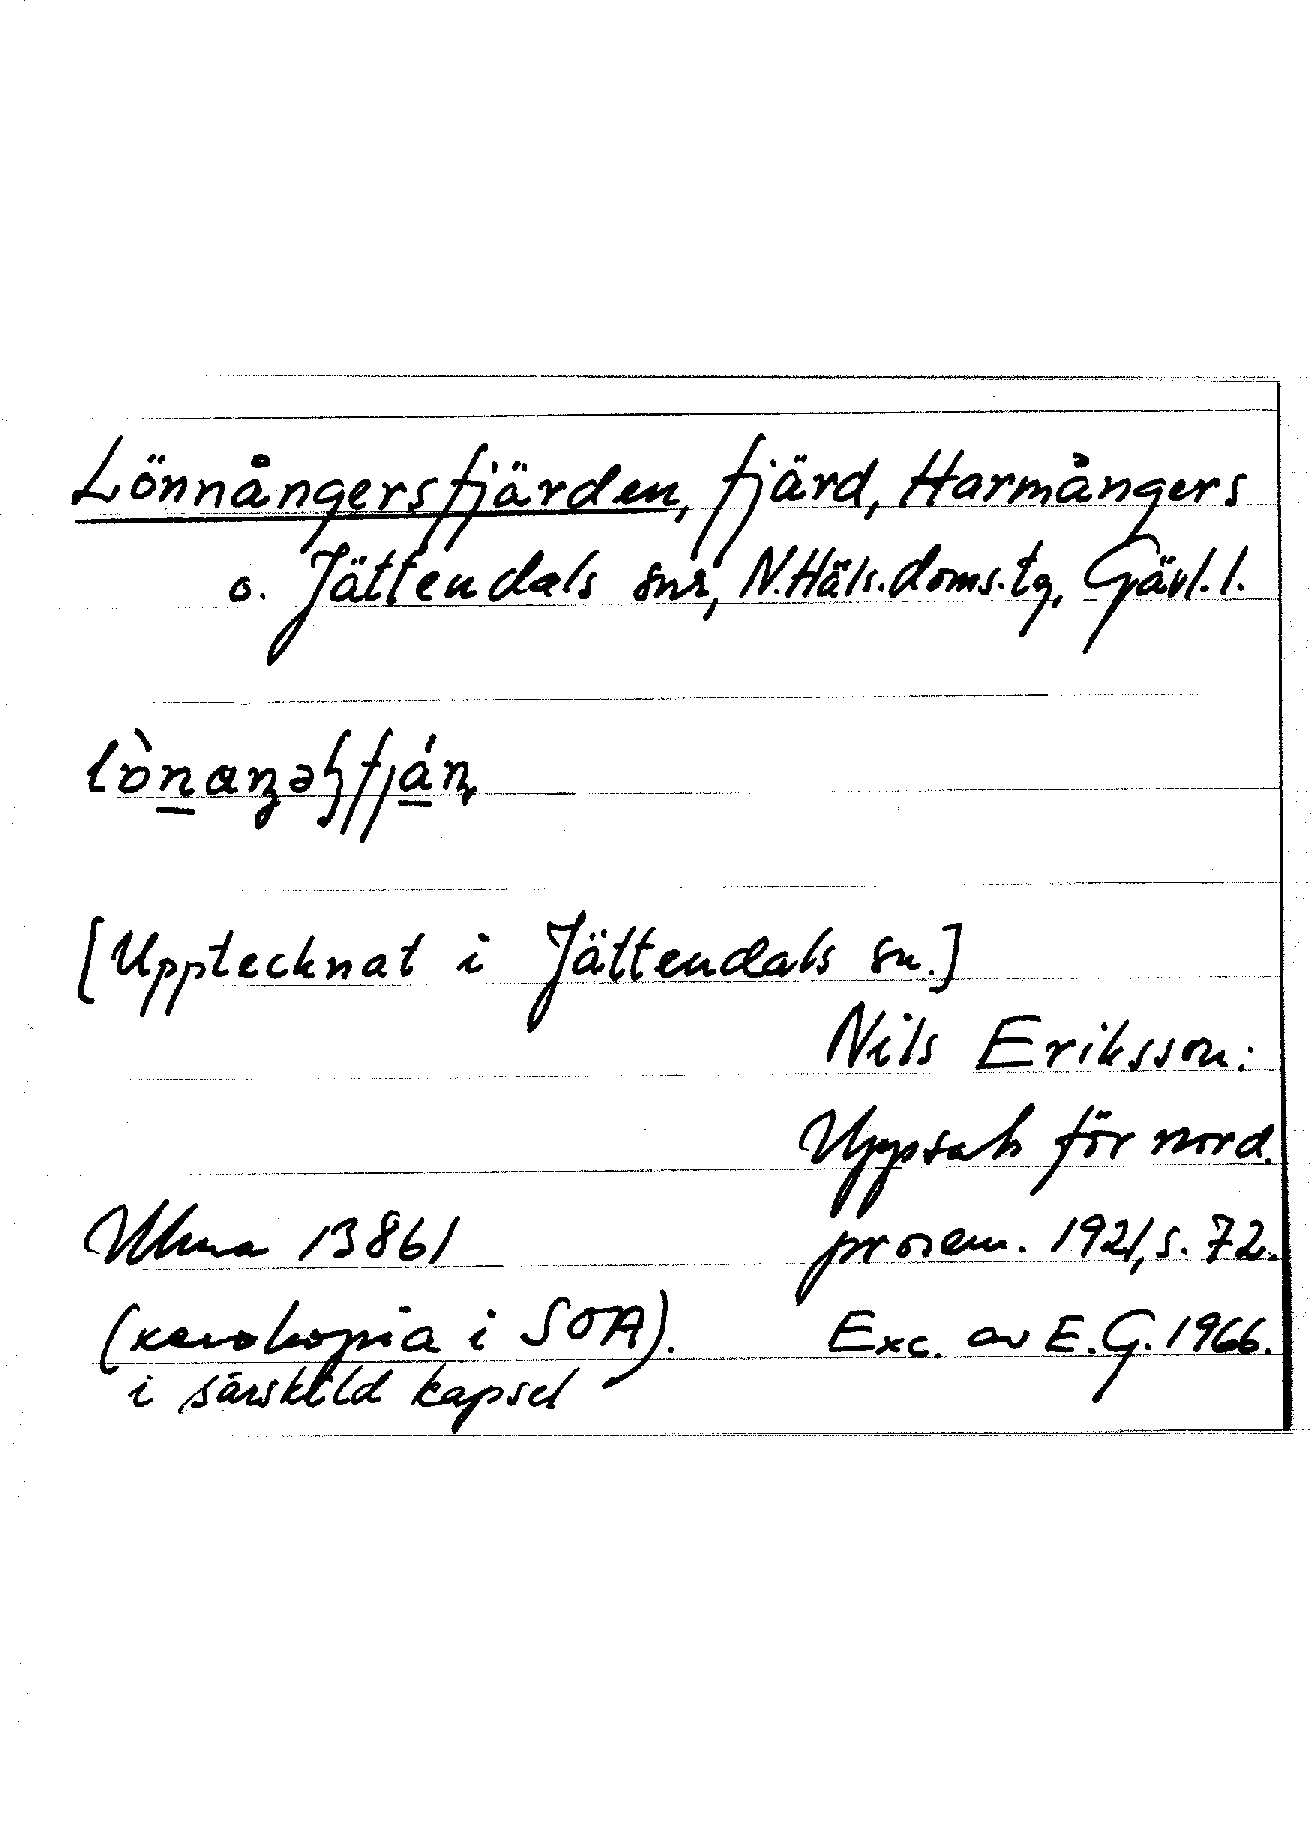 Lönnångersfjärden, fjärd, Harmångers
o. Jättendals snr, N.Häls.doms.tg, Gävl.l.
[Upptecknat i Jättendals sn.]
Nils Eriksson:
Uppsats för nord.
prosem. 1921, s. 72.
Ulma 13861
(xerokopia i SOA).
i särskild kapsel
Exc. av E.G. 1966.